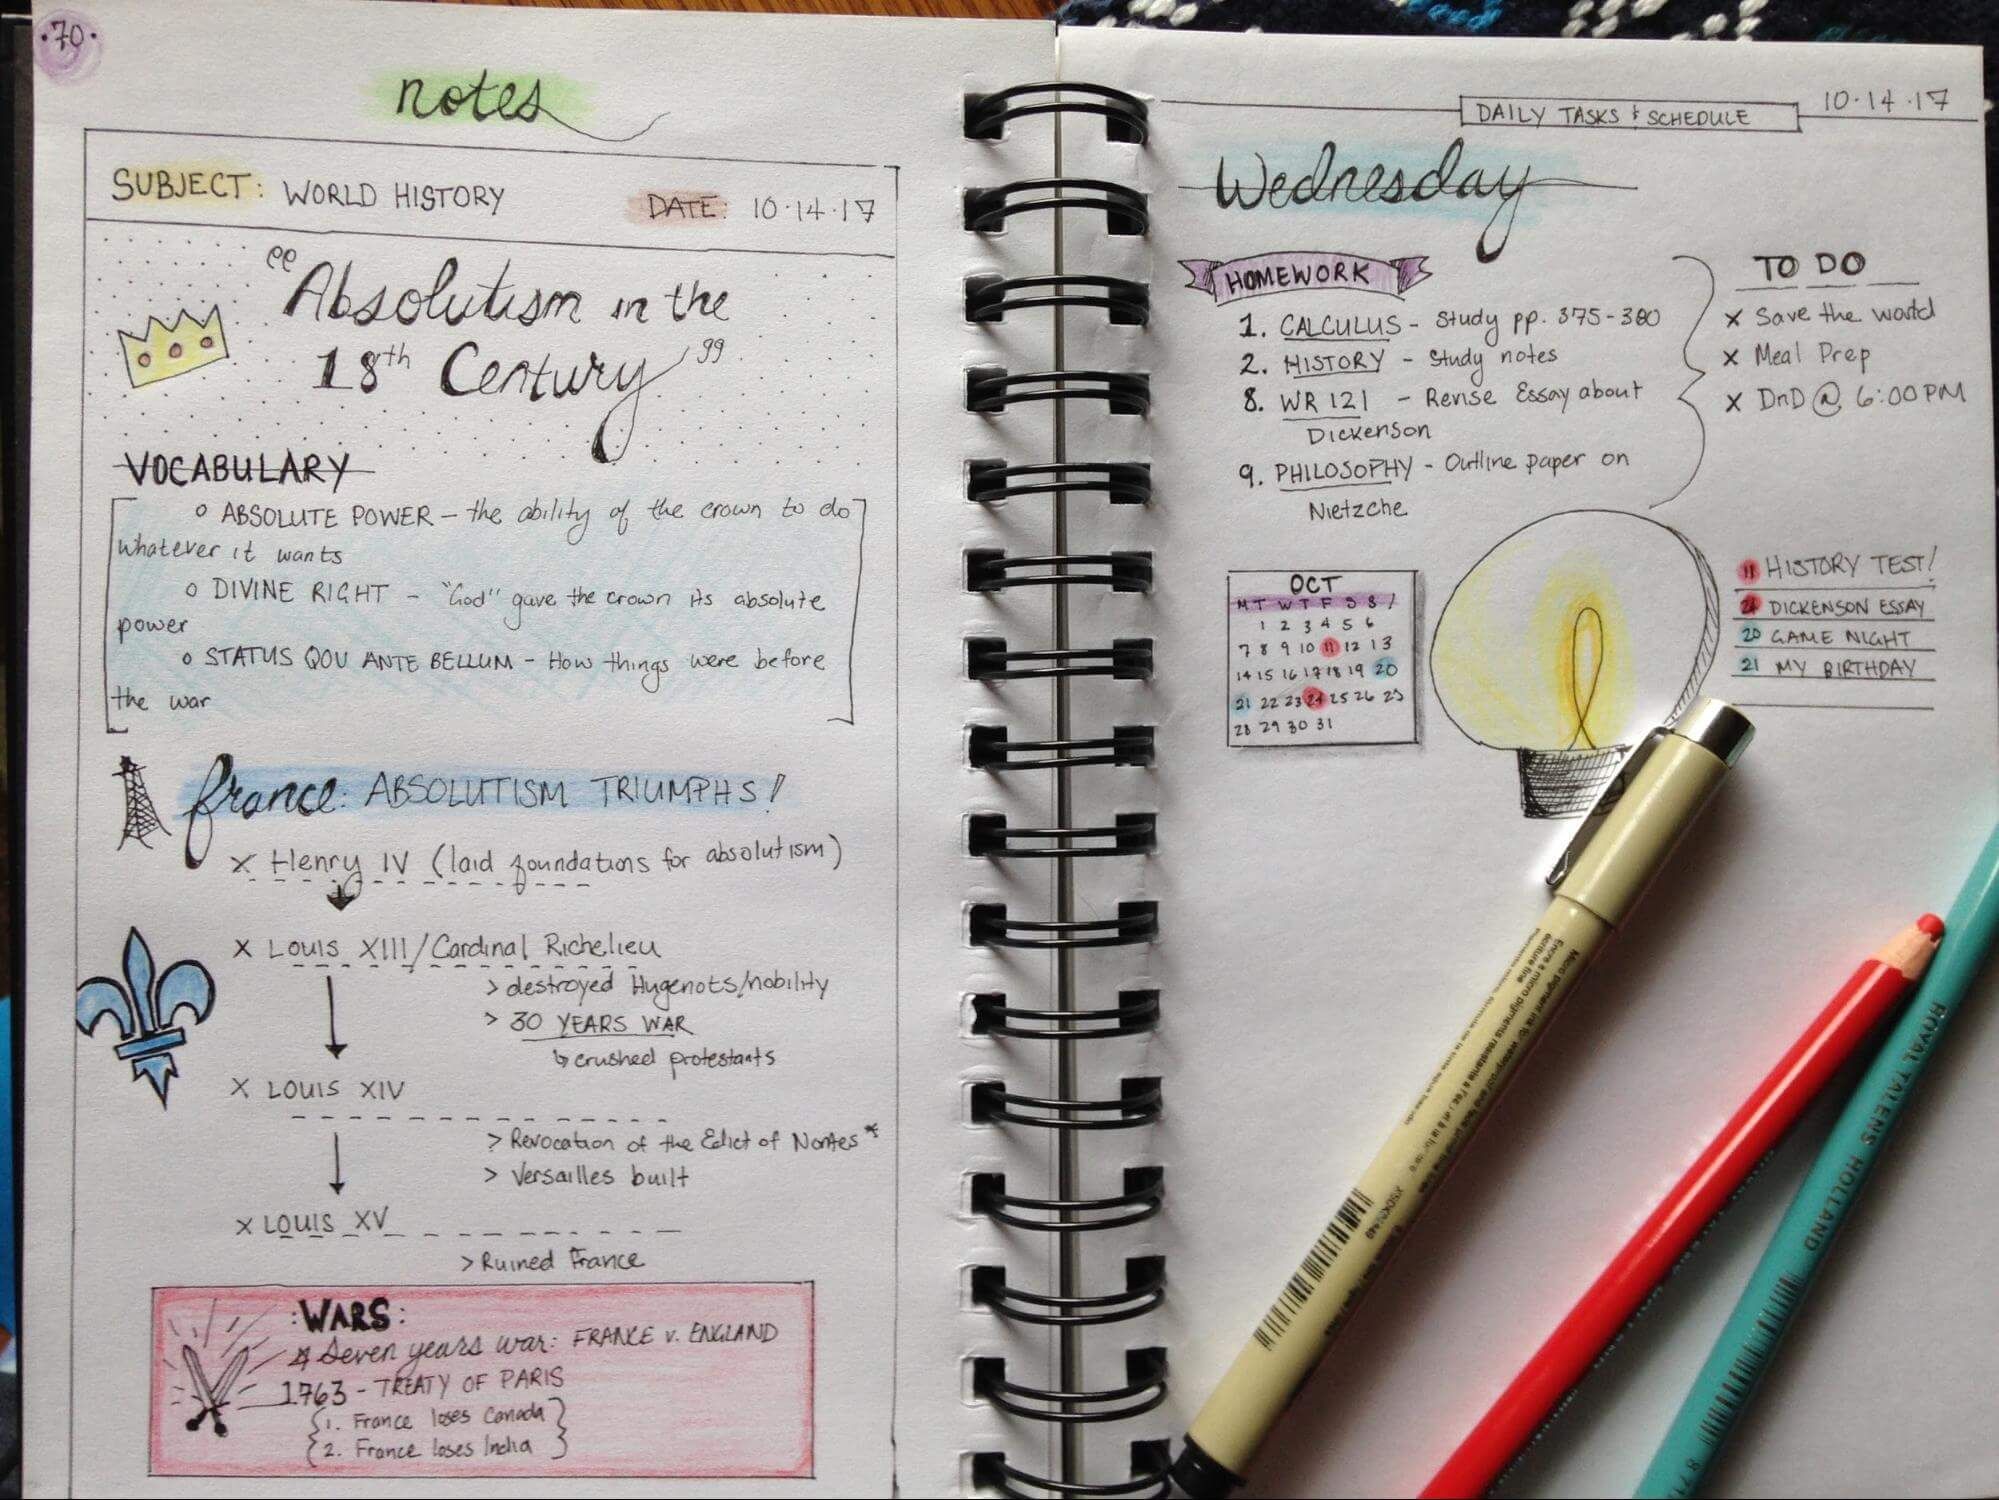 ·70·
notes
SUBJECT: WORLD HISTORY
DATE: 10·14·17
"Absolutism in the
18th Century"
VOCABULARY
o ABSOLUTE POWER - the ability of the crown to do
whatever it wants
o DIVINE RIGHT - "God" gave the crown its absolute
power
o STATUS QOU ANTE BELLUM - How things were before
the war
france: ABSOLUTISM TRIUMPHS!
x Henry IV (laid foundations for absolutism)
x Louis XIII/Cardinal Richelieu
> destroyed Hugenots/nobility
> 30 YEARS WAR
↳ crushed protestants
x LOUIS XIV
> Revocation of the Edict of Nantes*
> Versailles built
x LOUIS XV
> Ruined France
:WARS:
Seven years war: FRANCE v. ENGLAND
1763 - TREATY OF PARIS
{1. France loses Canada}
{2. France loses India}
DAILY TASKS & SCHEDULE
10·14·17
Wednesday
HOMEWORK
1. CALCULUS - Study pp. 375-380
2. HISTORY - Study notes
8. WR 121 - Revise Essay about
Dickenson
9. PHILOSOPHY - Outline paper on
Nietzche
TO DO
x Save the world
x Meal Prep
x DnD @ 6:00 PM
OCT
M T W T F S S
1 2 3 4 5 6
7 8 9 10 11 12 13
14 15 16 17 18 19 20
21 22 23 24 25 26 27
28 29 30 31
11 HISTORY TEST!
24 DICKENSON ESSAY
20 GAME NIGHT
21 MY BIRTHDAY
ROYAL TALENS HOLLAND